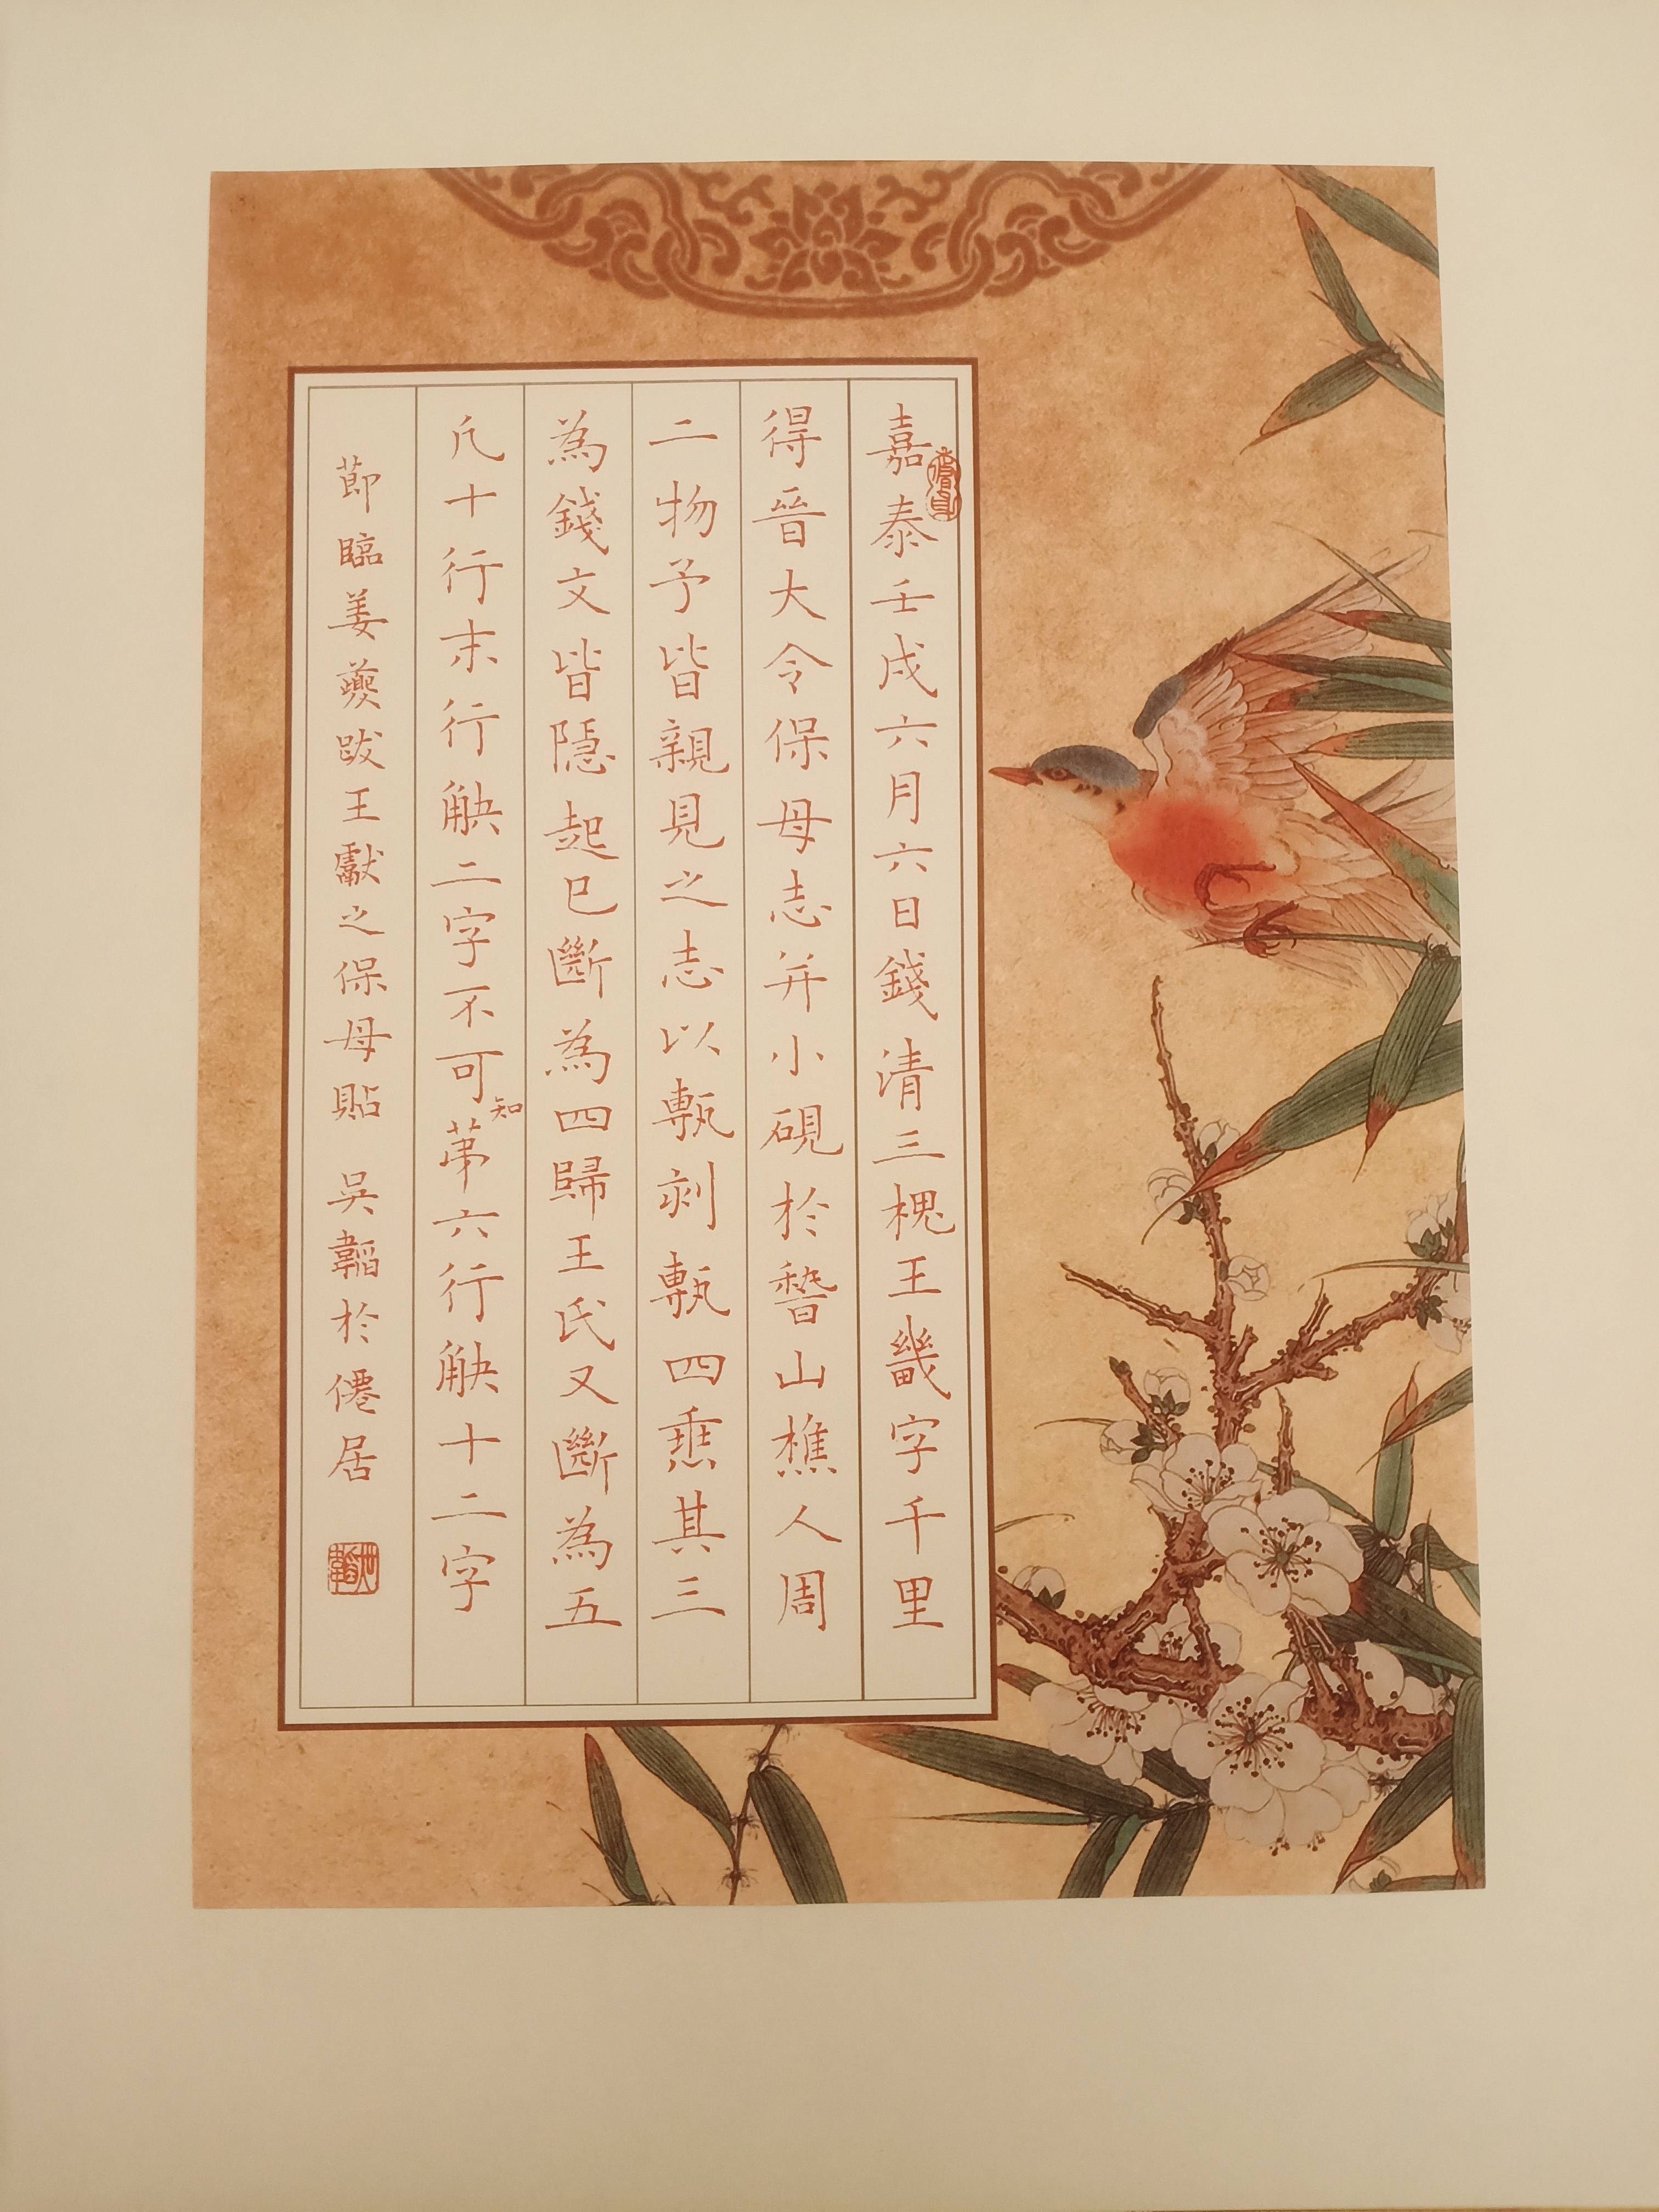 嘉泰壬戌六月六日錢清三槐王畿字千里
得晉大令保母志并小硯於稽山樵人周
二物予皆親見之志以甎刻甎四垂其三
為錢文皆隱起已斷為四歸王氏又斷為五
凡十行末行缺二字不可知第六行缺十二字
節臨姜夔跋王獻之保母帖 吳韜於僊居